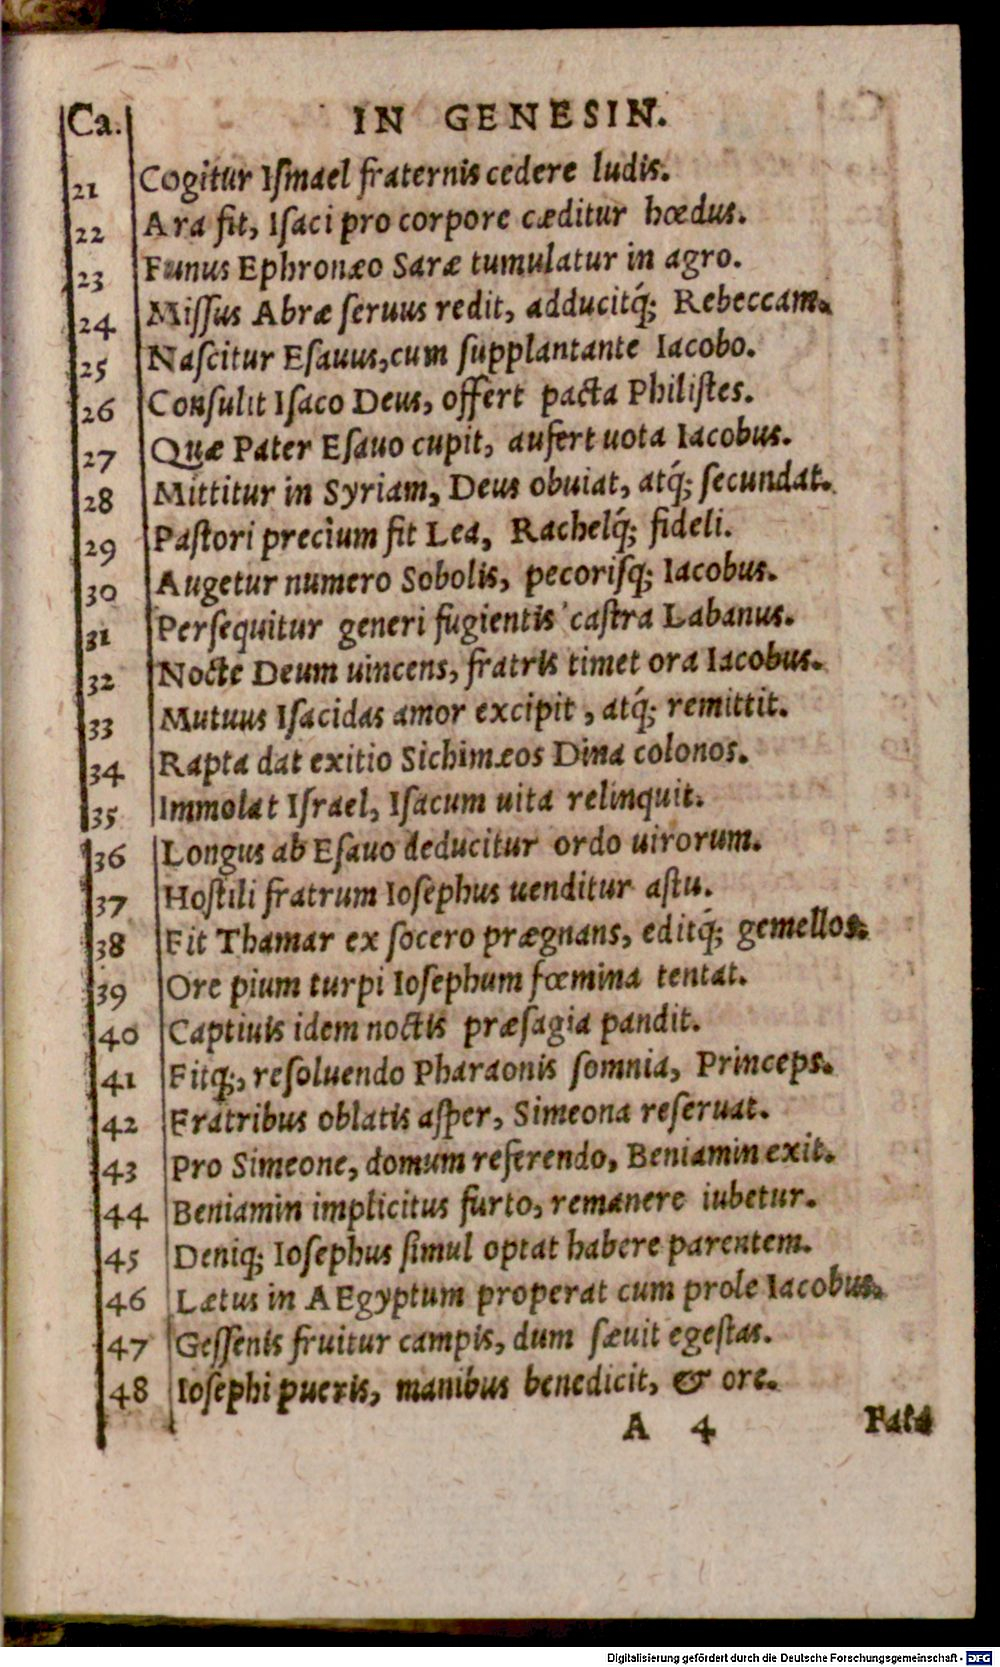 Ca. IN GENESIN.
21 Cogitur Iſmael fraternis cedere ludis.
22 Ara fit, Iſaci pro corpore cæditur hœdus.
23 Funus Ephronæo Saræ tumulatur in agro.
24 Miſſus Abræ ſeruus redit, adducitq́; Rebeccam.
25 Naſcitur Eſauus, cum ſupplantante Iacobo.
26 Conſulit Iſaco Deus, offert pacta Philiſtes.
27 Quæ Pater Eſauo cupit, aufert uota Iacobus.
28 Mittitur in Syriam, Deus obuiat, atq́; ſecundat.
29 Paſtori precium fit Lea, Rachelq́; fideli.
30 Augetur numero Sobolis, pecoriſq; Iacobus.
31 Perſequitur generi fugientis caſtra Labanus.
32 Nocte Deum uincens, fratris timet ora Iacobus.
33 Mutuus Iſacidas amor excipit, atq́; remittit.
34 Rapta dat exitio Sichimæos Dina colonos.
35 Immolat Iſrael, Iſacum uita relinquit.
36 Longus ab Eſauo deducitur ordo uirorum.
37 Hoſtili fratrum Ioſephus uenditur aſtu.
38 Fit Thamar ex ſocero prægnans, editq́; gemellos.
39 Ore pium turpi Ioſephum fœmina tentat.
40 Captiuis idem noctis præſagia pandit.
41 Fitq;, reſoluendo Pharaonis ſomnia, Princeps.
42 Fratribus oblatis aſper, Simeona reſeruat.
43 Pro Simeone, domum referendo, Beniamin exit.
44 Beniamin implicitus furto, remanere iubetur.
45 Deniq; Ioſephus ſimul optat habere parentem.
46 Lætus in AEgyptum properat cum prole Iacobus.
47 Geſſenis fruitur campis, dum ſæuit egeſtas.
48 Ioſephi pueris, manibus benedicit, & ore.
A 4 Fata
Digitalisierung gefördert durch die Deutsche Forschungsgemeinschaft - DFG